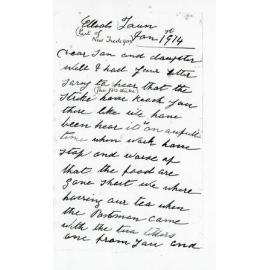 Elliots Town
(Part of New Tredegar)
Jan 1914
Dear Son and daughter
Well I had your letter
sorry to hear that the
strike have reach you
there like we have
been hear it an
time when work have
stop and words of
that the food are
gone short we where
having our tea when
the Postman came
with the two letters
one from you and